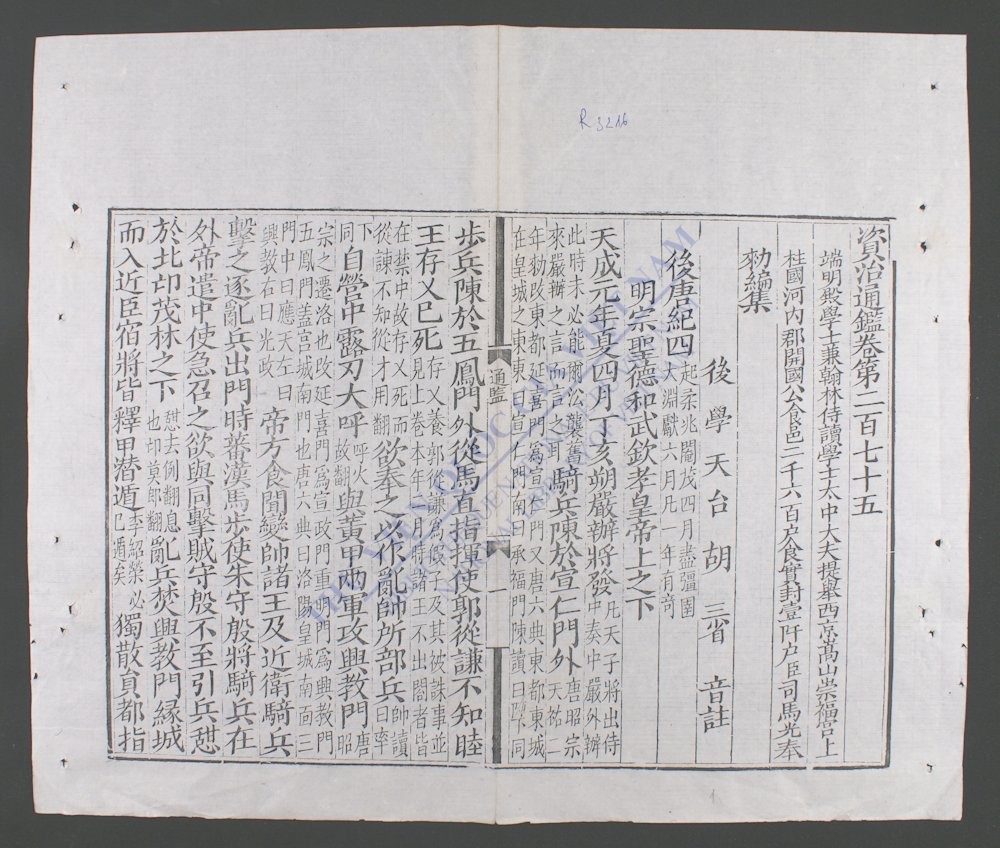 R 3216
資治通鑑卷第二百七十五
端明殿學士兼翰林侍讀學士太中大夫提舉西京嵩山崇福宮上
柱國河內郡開國公食邑二千六百户食實封壹阡户臣司馬光奉
勑編集
後學天台胡三省音註
後唐紀四 起柔兆閹茂四月盡彊圉
大淵獻六月凡一年有奇
明宗聖德和武欽孝皇帝上之下
天成元年夏四月丁亥朔嚴辦將發 凡天子將出侍
中奏中嚴外辦
此時未必能爾沿襲舊
來嚴辦之言而言之耳 騎兵陳於宣仁門外 唐昭宗
天祐二
年勑改東都延喜門爲宣仁門又唐六典東都東城
在皇城之東東曰宣仁門南曰承福門陳讀曰陣同
通監
一
步兵陳於五鳳門外從馬直指揮使郭從謙不知睦
王存乂已死 存乂養郭從謙爲假子及其被誅事並
見上卷本年二月時諸王不出閤者皆
在禁中故存乂死而
從謙不知從才用翻 欲奉之以作亂帥所部兵 帥讀
曰率
下
同 自營中露刃大呼 呼火
故翻 與黃甲兩軍攻興教門 唐
昭
宗之遷洛也改延喜門爲宣政門重明門爲興教門
五鳳門蓋宮城南門也唐六典曰洛陽皇城南面三
門中曰應天左曰
興教右曰光政 帝方食聞變帥諸王及近衛騎兵
擊之逐亂兵出門時蕃漢馬步使朱守殷將騎兵在
外帝遣中使急召之欲與同擊賊守殷不至引兵憩
於北邙茂林之下 憩去例翻息
也邙莫郎翻 亂兵焚興教門縁城
而入近臣宿將皆釋甲潜遁 李紹榮必
已遁矣 獨散員都指